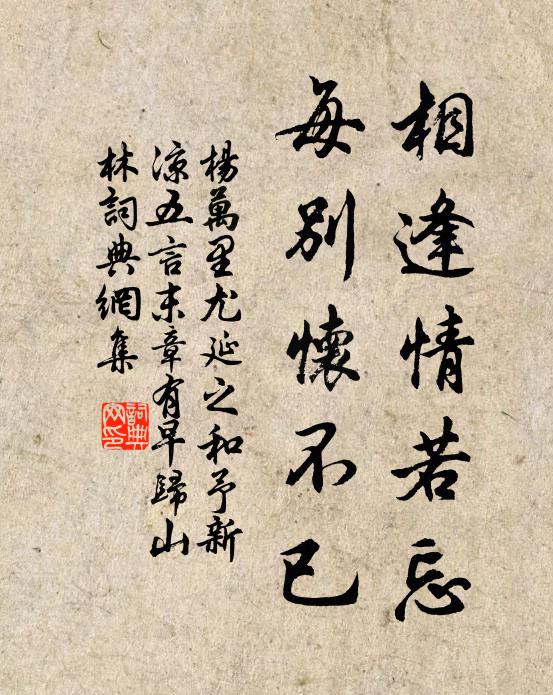 相逢情若忘
每別懷不已
楊萬里尤延之和予新
涼五言末章有早歸山
林詞典網集
詞典
网印